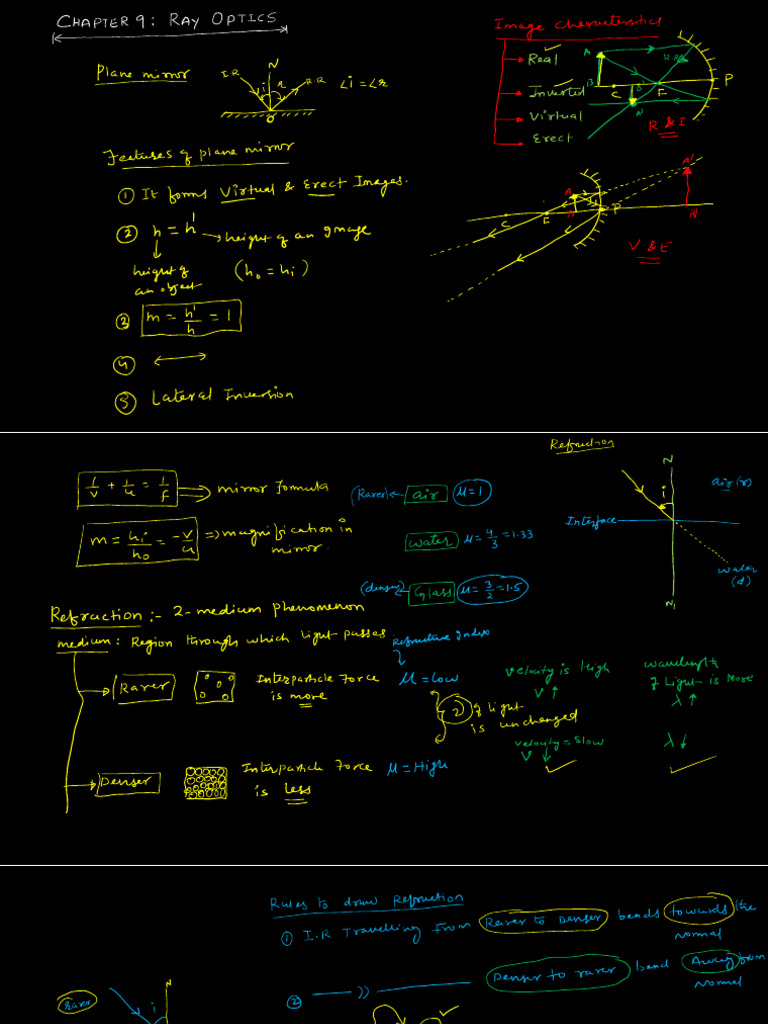 CHAPTER 9: RAY OPTICS
Plane mirror
I.R
N
i
r
R.R
∠i = ∠r
O
Features of plane mirror
① It forms Virtual & Erect Images.
② h = h' → height of an Image
height of an object
(h₀ = hᵢ)
③ m = h'/h = 1
④ ⟷
⑤ Lateral Inversion
Image characteristics
Real ✓
Inverted ✓
Virtual
Erect
A
B
C
B'
A'
F
P
R & I
A
C
F
P
A'
V & E
1/v + 1/u = 1/f ⇒ mirror formula
m = hᵢ/h₀ = -v/u ⇒ magnification in mirror.
(Rarer) ← air μ = 1
water μ = 4/3 = 1.33
(denser) Glass μ = 3/2 = 1.5
Refraction
N
i
air (r)
Interface
water (d)
N₁
Refraction :- 2-medium phenomenon
medium : Region through which light passes
Refractive Index
Rarer
Interparticle Force is more
μ = Low
velocity is High
v ↑
wavelength of Light is More
λ ↑
ν of light is unchanged
Denser
Interparticle Force is less
μ = High
velocity = Slow
v ↓
λ ↓
Rules to draw Refraction
① I.R Travelling From Rarer to Denser bends towards the normal
② —— )) —— Denser to rarer bend Away from normal
Rarer
i
N